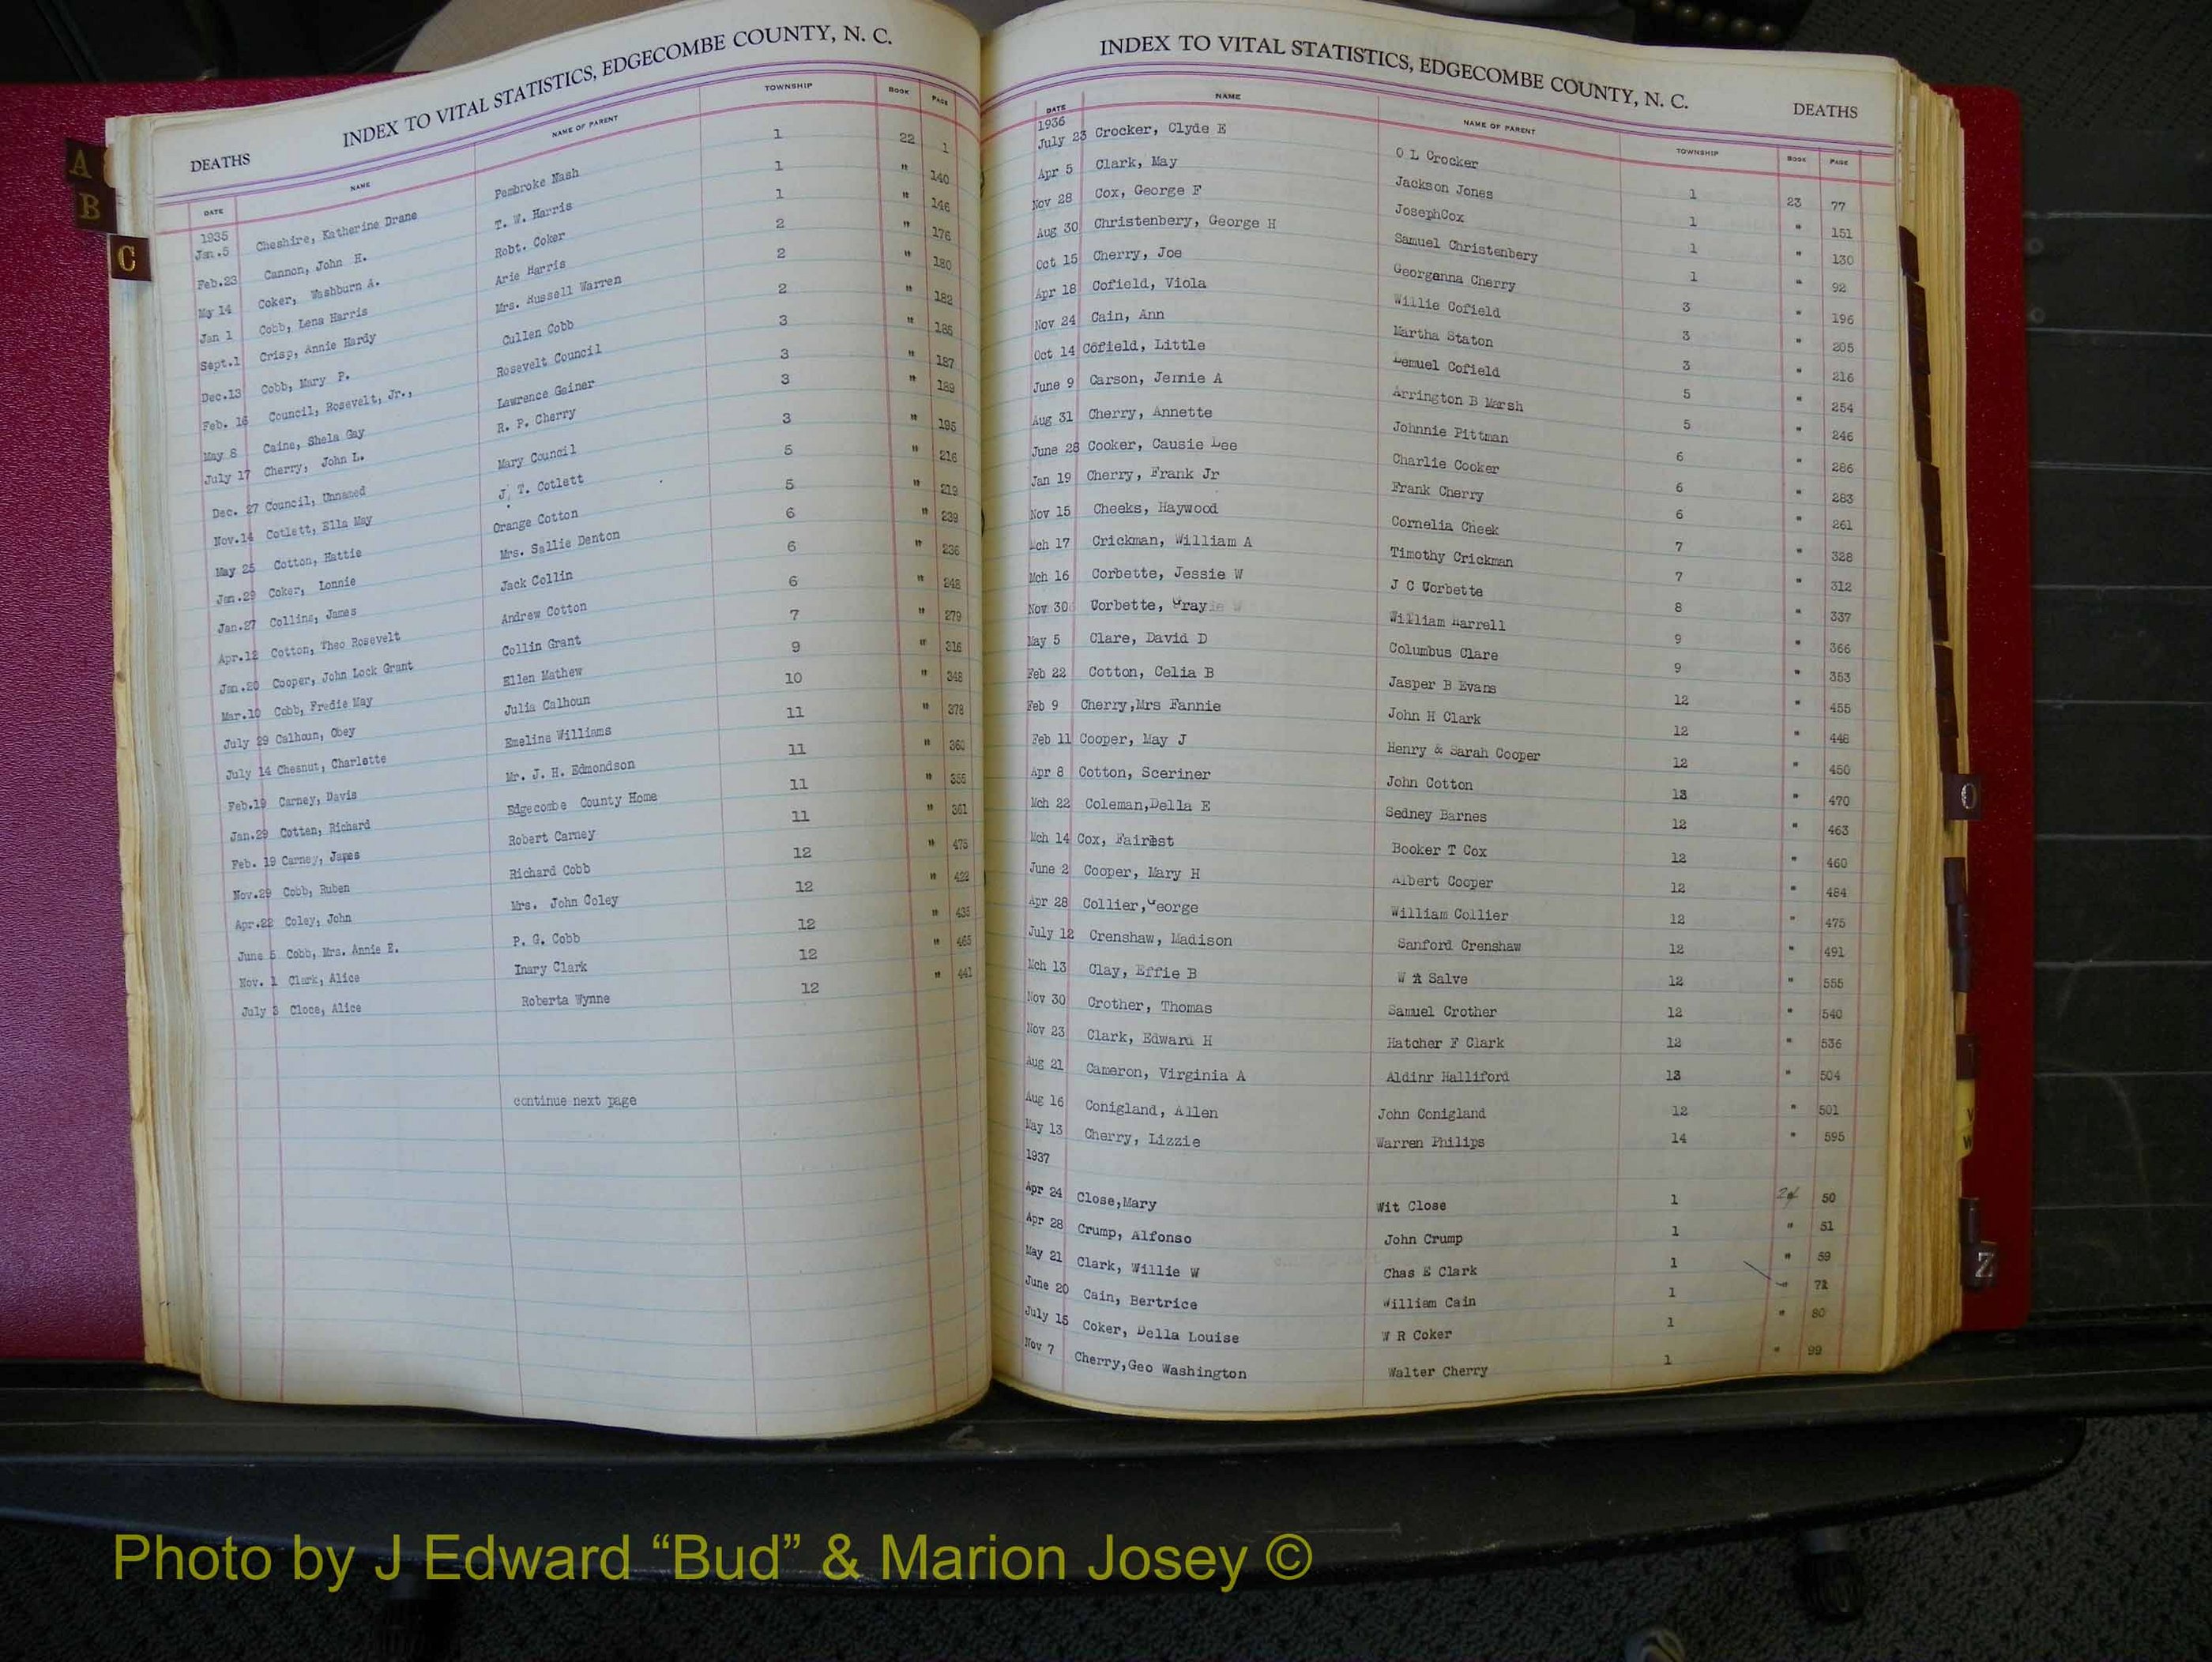 A
B
C
INDEX TO VITAL STATISTICS, EDGECOMBE COUNTY, N. C.
DEATHS
DATE NAME NAME OF PARENT TOWNSHIP BOOK PAGE
1935
Jan.5 Cheshire, Katherine Drane Pembroke Nash 1 22 1
Feb.23 Cannon, John H. T. W. Harris 1 " 140
My 14 Coker, Washburn A. Robt. Coker 1 " 146
Jan 1 Cobb, Lena Harris Arie Harris 2 " 176
Sept.1 Crisp, Annie Hardy Mrs. Russell Warren 2 " 180
Dec.13 Cobb, Mary P. Cullen Cobb 2 " 182
Feb. 16 Council, Rosevelt, Jr., Rosevelt Council 3 " 186
May 8 Caine, Shela Gay Lawrence Gainer 3 " 187
July 17 Cherry, John L. R. P. Cherry 3 " 189
Dec. 27 Council, Unnamed Mary Council 3 " 195
Nov.14 Cotlett, Ella May J. T. Cotlett 5 " 216
May 25 Cotton, Hattie Orange Cotton 5 " 219
Jan.29 Coker, Lonnie Mrs. Sallie Denton 6 " 239
Jan.27 Collins, James Jack Collin 6 " 236
Apr.12 Cotton, Theo Rosevelt Andrew Cotton 6 " 248
Jan.20 Cooper, John Lock Grant Collin Grant 7 " 279
Mar.10 Cobb, Fredie May Ellen Mathew 9 " 316
July 29 Calhoun, Obey Julia Calhoun 10 " 348
July 14 Chesnut, Charlotte Emeline Williams 11 " 378
Feb.19 Carney, Davis Mr. J. H. Edmondson 11 "
Jan.29 Cotten, Richard Edgecombe County Home 11 " 355
Feb. 19 Carney, James Robert Carney 11 " 361
Nov.29 Cobb, Ruben Richard Cobb 12 " 475
Apr.22 Coley, John Mrs. John Coley 12 " 422
June 5 Cobb, Mrs. Annie E. P. G. Cobb 12 " 435
Nov. 1 Clark, Alice Inary Clark 12 " 465
July 3 Cloce, Alice Roberta Wynne 12 " 441
continue next page
INDEX TO VITAL STATISTICS, EDGECOMBE COUNTY, N. C.
DEATHS
DATE NAME NAME OF PARENT TOWNSHIP BOOK PAGE
1936
July 23 Crocker, Clyde E O L Crocker 1 23 77
Apr 5 Clark, May Jackson Jones 1 " 151
Nov 28 Cox, George F JosephCox 1 " 130
Aug 30 Christenbery, George H Samuel Christenbery 1 " 92
Oct 15 Cherry, Joe Georganna Cherry 3 " 196
Apr 18 Cofield, Viola Willie Cofield 3 " 205
Nov 24 Cain, Ann Martha Staton 3 " 216
Oct 14 Cofield, Little Lemuel Cofield 5 " 254
June 9 Carson, Jennie A Arrington B Marsh 5 " 246
Aug 31 Cherry, Annette Johnnie Pittman 6 " 286
June 28 Cooker, Causie Lee Charlie Cooker 6 " 283
Jan 19 Cherry, Frank Jr Frank Cherry 6 " 261
Nov 15 Cheeks, Haywood Cornelia Cheek 7 " 328
Mch 17 Crickman, William A Timothy Crickman 7 " 312
Mch 16 Corbette, Jessie W J C Corbette 8 " 337
Nov 30 Corbette, Gray William Harrell 9 " 366
May 5 Clare, David D Columbus Clare 9 " 353
Feb 22 Cotton, Celia B Jasper B Evans 12 " 455
Feb 9 Cherry,Mrs Fannie John H Clark 12 " 446
Feb 11 Cooper, May J Henry & Sarah Cooper 12 " 450
Apr 8 Cotton, Sceriner John Cotton 12 " 470
Mch 22 Coleman,Della E Sedney Barnes 12 " 463
Mch 14 Cox, Booker T Cox 12 " 460
June 2 Cooper, Mary H Albert Cooper 12 " 484
Apr 28 Collier,George William Collier 12 " 475
July 12 Crenshaw, Madison Sanford Crenshaw 12 " 491
Mch 13 Clay, Effie B W A Salve 12 " 555
Nov 30 Crother, Thomas Samuel Crother 12 " 540
Nov 23 Clark, Edward H Hatcher F Clark 12 " 536
Aug 21 Cameron, Virginia A Aldinr Halliford 12 " 504
Aug 16 Conigland, Allen John Conigland 12 " 501
May 13 Cherry, Lizzie Warren Philips 14 " 595
1937
Apr 24 Close,Mary Wit Close 1 24 50
Apr 28 Crump, Alfonso John Crump 1 " 51
May 21 Clark, Willie W Chas E Clark 1 " 59
June 20 Cain, Bertrice William Cain 1 " 72
July 15 Coker, Della Louise W R Coker 1 " 80
Nov 7 Cherry,Geo Washington Walter Cherry 1 " 99
O
V
W
Z
Photo by J Edward “Bud” & Marion Josey ©